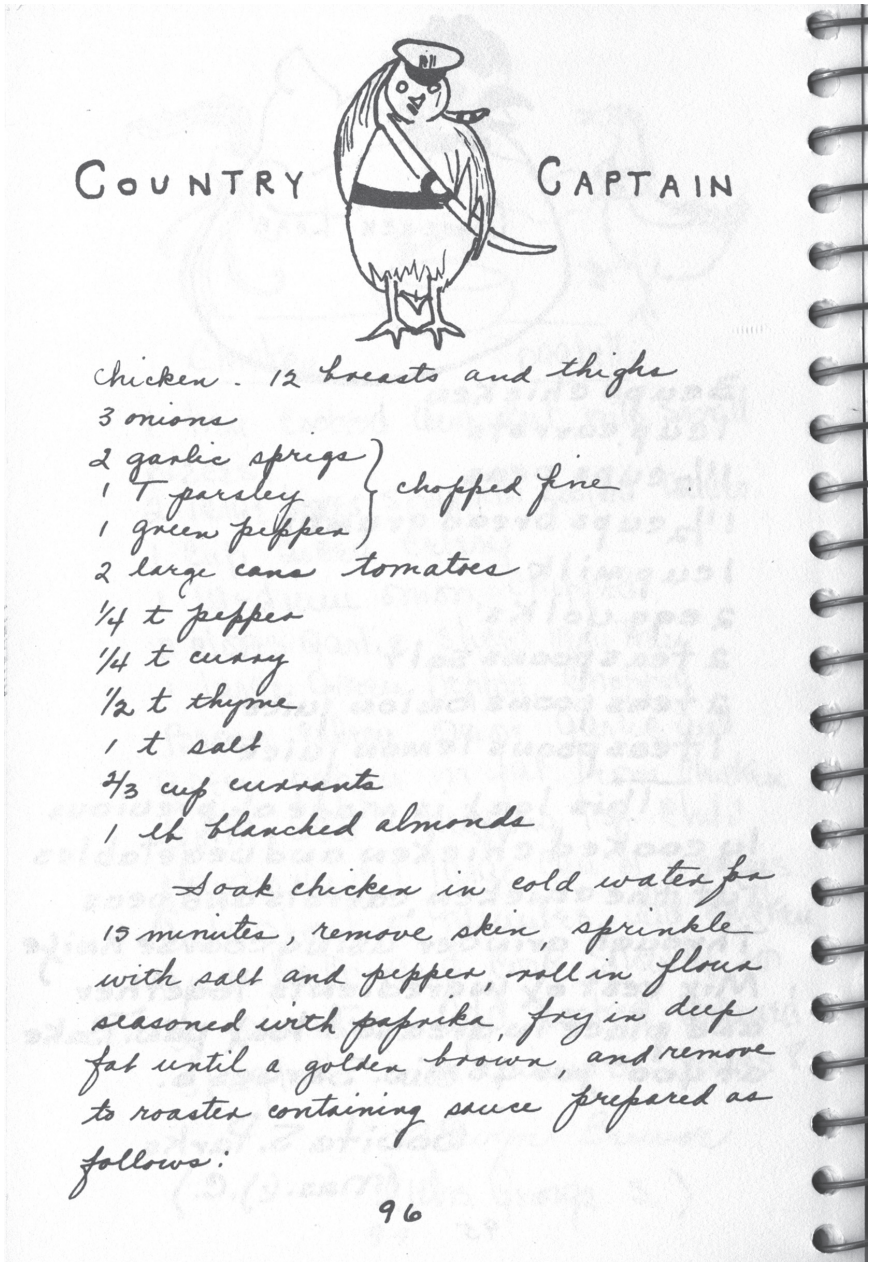 COUNTRY CAPTAIN
Chicken - 12 breasts and thighs
3 onions
2 garlic sprigs
1 T parsley } chopped fine
1 green pepper
2 large cans tomatoes
1/4 t pepper
1/4 t curry
1/2 t thyme
1 t salt
2/3 cup currants
1 lb blanched almonds
Soak chicken in cold water for
15 minutes, remove skin, sprinkle
with salt and pepper, roll in flour
seasoned with paprika, fry in deep
fat until a golden brown and remove
to roaster containing sauce prepared as
follows:
96